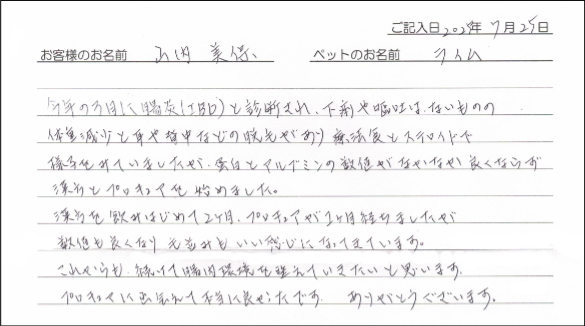 ご記入日2025年7月25日
お客様のお名前 山内 美保 ペットのお名前 ライム
今年の3月に腸炎(IBD)と診断され、下痢や嘔吐はないものの
体重減少と耳や背中などの脱毛があり 療法食とステロイドで
様子をみていましたが、蛋白とアルブミンの数値がなかなか良くならず
漢方とプロキュアを始めました。
漢方を飲みはじめて2ヶ月、プロキュアが1ヶ月経ちましたが
数値も良くなり 元気もいい感じになってきています。
これからも、続けて腸内環境を整えていきたいと思います。
プロキュアに出会えて本当に良かったです。 ありがとうございます。